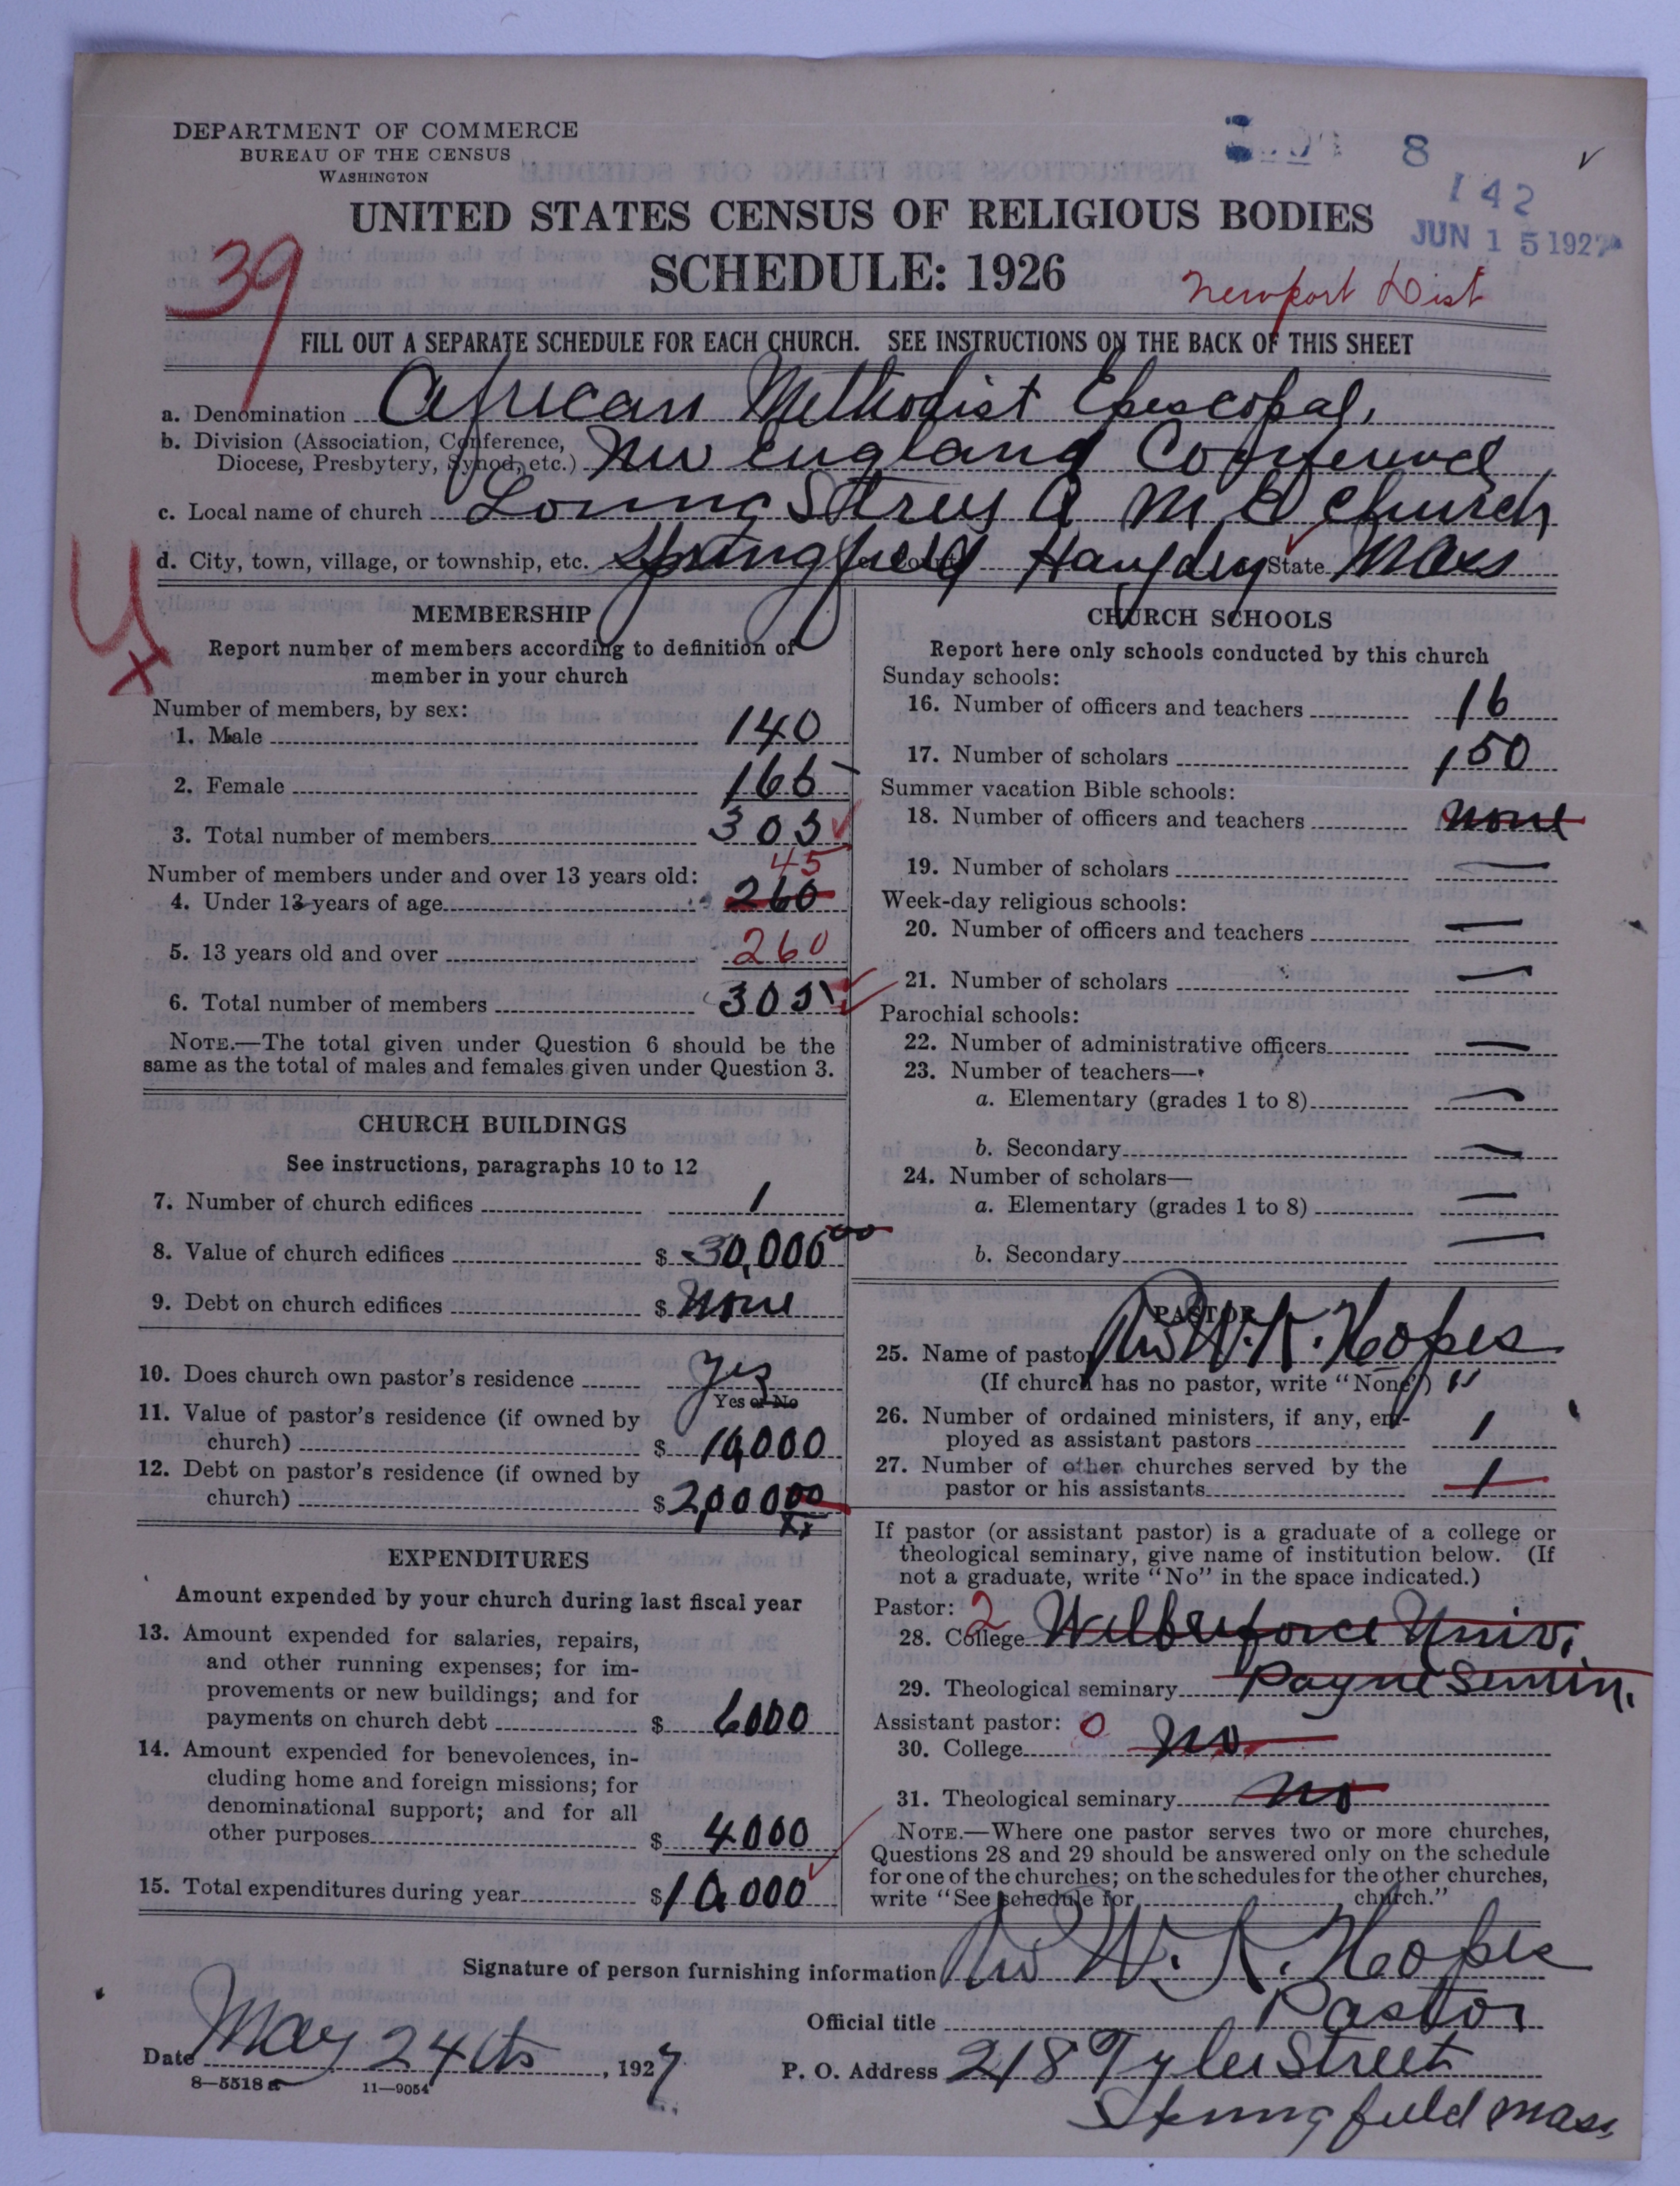 DEPARTMENT OF COMMERCE
BUREAU OF THE CENSUS
WASHINGTON
8
142
JUN 15 1927
UNITED STATES CENSUS OF RELIGIOUS BODIES
SCHEDULE: 1926
39
Newport Dist
FILL OUT A SEPARATE SCHEDULE FOR EACH CHURCH. SEE INSTRUCTIONS ON THE BACK OF THIS SHEET
a. Denomination African Methodist Episcopal,
b. Division (Association, Conference,
Diocese, Presbytery, Synod, etc.) New England Conference
c. Local name of church Loring Street A M E Church
d. City, town, village, or township, etc. Springfield County Hampden State Mass
MEMBERSHIP
Report number of members according to definition of
member in your church
Number of members, by sex:
1. Male 140
2. Female 165
3. Total number of members 305
45
Number of members under and over 13 years old:
4. Under 13 years of age 260
5. 13 years old and over 260
6. Total number of members 305
NOTE.—The total given under Question 6 should be the
same as the total of males and females given under Question 3.
CHURCH BUILDINGS
See instructions, paragraphs 10 to 12
7. Number of church edifices 1
8. Value of church edifices $ 30,000 00
9. Debt on church edifices $ None
10. Does church own pastor's residence Yes
Yes or No
11. Value of pastor's residence (if owned by
church) $ 10,000
12. Debt on pastor's residence (if owned by
church) $ 2,000 00
xx
EXPENDITURES
Amount expended by your church during last fiscal year
13. Amount expended for salaries, repairs,
and other running expenses; for im-
provements or new buildings; and for
payments on church debt $ 6000
14. Amount expended for benevolences, in-
cluding home and foreign missions; for
denominational support; and for all
other purposes $ 4000
15. Total expenditures during year $ 10,000
CHURCH SCHOOLS
Report here only schools conducted by this church
Sunday schools:
16. Number of officers and teachers 16
17. Number of scholars 150
Summer vacation Bible schools:
18. Number of officers and teachers None
19. Number of scholars —
Week-day religious schools:
20. Number of officers and teachers —
21. Number of scholars —
Parochial schools:
22. Number of administrative officers —
23. Number of teachers—
a. Elementary (grades 1 to 8) —
b. Secondary —
24. Number of scholars—
a. Elementary (grades 1 to 8) —
b. Secondary —
PASTOR
25. Name of pastor Rev W. K. Hopes
(If church has no pastor, write "None") "
26. Number of ordained ministers, if any, em-
ployed as assistant pastors 1
27. Number of other churches served by the
pastor or his assistants 1
If pastor (or assistant pastor) is a graduate of a college or
theological seminary, give name of institution below. (If
not a graduate, write "No" in the space indicated.)
Pastor: 2
28. College Wilberforce Univ.
29. Theological seminary Payne Semin.
Assistant pastor: 0
30. College No
31. Theological seminary No
NOTE.—Where one pastor serves two or more churches,
Questions 28 and 29 should be answered only on the schedule
for one of the churches; on the schedules for the other churches,
write "See schedule for church."
Signature of person furnishing information Rev W. K. Hopes
Official title Pastor
Date May 24th, 1927
P. O. Address 218 Tyler Street
8—5518 a 11—9054
Springfield Mass,